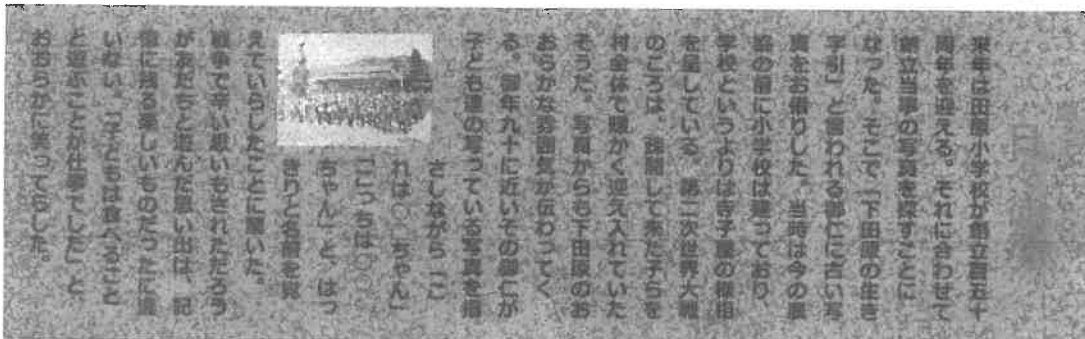 来年は田原小学校が創立百五十
周年を迎える。それに合わせて
創立当事の写真を探すことに
なった。そこで「下田原の生き
字引」と言われる御仁に古い写
真をお借りした。当時は今の農
協の前に小学校は建っており、
学校というよりは寺子屋の様相
を呈している。第二次世界大戦
のころは、疎開して来た子らを
村全体で暖かく迎え入れていた
そうだ。写真からも下田原のお
おらかな雰囲気が伝わってく
る。御年九十に近いその御仁が
子ども達の写っている写真を指
さしながら「こ
れは○○ちゃん」
「こっちは○○
ちゃん」と、はっ
きりと名前を覚
えていらしたことに驚いた。
戦争で辛い思いもされただろう
が友だちと遊んだ思い出は、記
憶に残る楽しいものだったに違
いない。「子どもは食べること
と遊ぶことが仕事でした」と、
おおらかに笑ってらした。